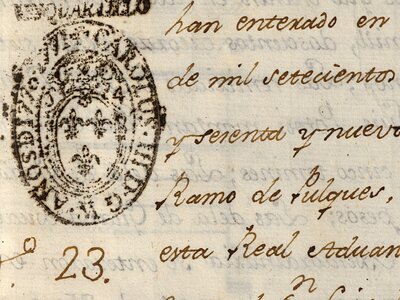 UN QUARTILLO
CAROLUS·III·D·G·
han enterado en
de mil setecientos
y sesenta y nueve
Ramo de Pulques,
esta Real Aduan
23.